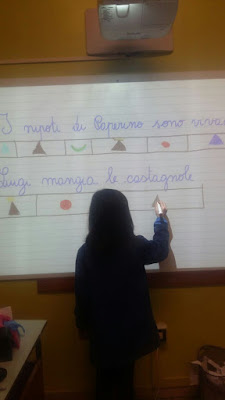 I nipoti di Paperino sono viva
Luigi mangia le castagnole